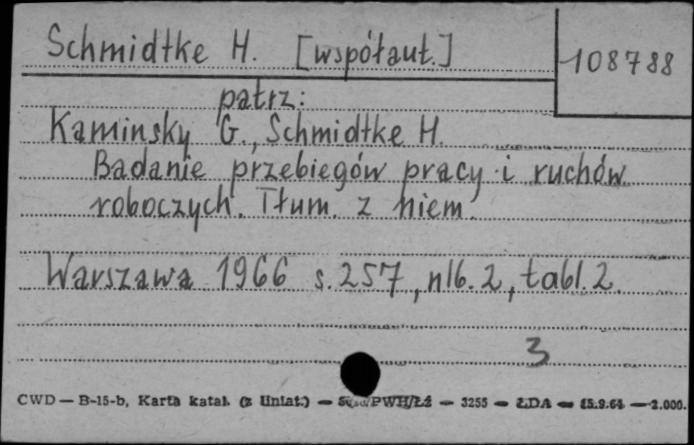 Schmidtke H. [współaut.]
108788
patrz:
Kaminsky G., Schmidtke H.
Badanie przebiegów pracy i ruchów
roboczych. Tłum. z niem.
Warszawa 1966 s. 257, nlb. 2, tabl. 2.
3
CWD — B-15-b, Karta katal. (z liniat.) — PWH/Łż — 3255 — ŁDA — 15.9.64 — 2.000.